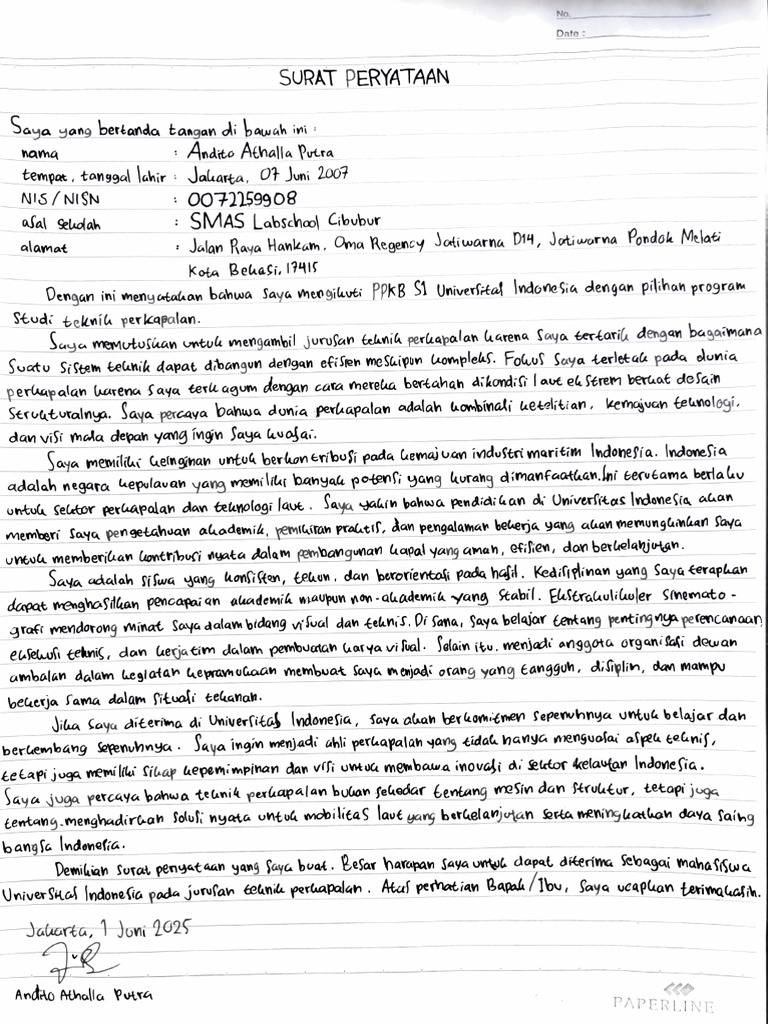 No.
Date :
SURAT PERYATAAN
Saya yang bertanda tangan di bawah ini :
nama : Andito Athalla Putra
tempat, tanggal lahir : Jakarta, 07 Juni 2007
NIS / NISN : 0072259908
asal sekolah : SMAS Labschool Cibubur
alamat : Jalan Raya Hankam, Oma Regency Jatiwarna D14, Jatiwarna Pondok Melati
Kota Bekasi, 17415
Dengan ini menyatakan bahwa saya mengikuti PPKB S1 Universitas Indonesia dengan pilihan program
studi teknik perkapalan.
Saya memutuskan untuk mengambil jurusan teknik perkapalan karena saya tertarik dengan bagaimana
suatu sistem teknik dapat dibangun dengan efisien meskipun kompleks. Fokus saya terletak pada dunia
perkapalan karena saya terkagum dengan cara mereka bertahan dikondisi laut ekstrem berkat desain
strukturalnya. Saya percaya bahwa dunia perkapalan adalah kombinasi ketelitian, kemajuan teknologi,
dan visi masa depan yang ingin saya kuasai.
Saya memiliki keinginan untuk berkontribusi pada kemajuan industri maritim Indonesia. Indonesia
adalah negara kepulauan yang memiliki banyak potensi yang kurang dimanfaatkan. Ini terutama berlaku
untuk sektor perkapalan dan teknologi laut. Saya yakin bahwa pendidikan di Universitas Indonesia akan
memberi saya pengetahuan akademik, pemikiran praktis, dan pengalaman bekerja yang akan memungkinkan saya
untuk memberikan kontribusi nyata dalam pembangunan kapal yang aman, efisien, dan berkelanjutan.
Saya adalah siswa yang konsisten, tekun, dan berorientasi pada hasil. Kedisiplinan yang saya terapkan
dapat menghasilkan pencapaian akademik maupun non-akademik yang stabil. Ekstrakulikuler sinemato-
grafi mendorong minat saya dalam bidang visual dan teknis. Di sana, saya belajar tentang pentingnya perencanaan,
eksekusi teknis, dan kerjatim dalam pembuatan karya visual. Selain itu, menjadi anggota organisasi dewan
ambalan dalam kegiatan kepramukaan membuat saya menjadi orang yang tangguh, disiplin, dan mampu
bekerja sama dalam situasi tekanan.
Jika saya diterima di Universitas Indonesia, saya akan berkomitmen sepenuhnya untuk belajar dan
berkembang sepenuhnya. Saya ingin menjadi ahli perkapalan yang tidak hanya menguasai aspek teknis,
tetapi juga memiliki sikap kepemimpinan dan visi untuk membawa inovasi di sektor kelautan Indonesia.
Saya juga percaya bahwa teknik perkapalan bukan sekedar tentang mesin dan struktur, tetapi juga
tentang menghadirkan solusi nyata untuk mobilitas laut yang berkelanjutan serta meningkatkan daya saing
bangsa Indonesia.
Demikian surat penyataan yang saya buat. Besar harapan saya untuk dapat diterima sebagai mahasiswa
Universitas Indonesia pada jurusan teknik perkapalan. Atas perhatian Bapak/Ibu, saya ucapkan terimakasih.
Jakarta, 1 Juni 2025
Andito Athalla Putra
PAPERLINE